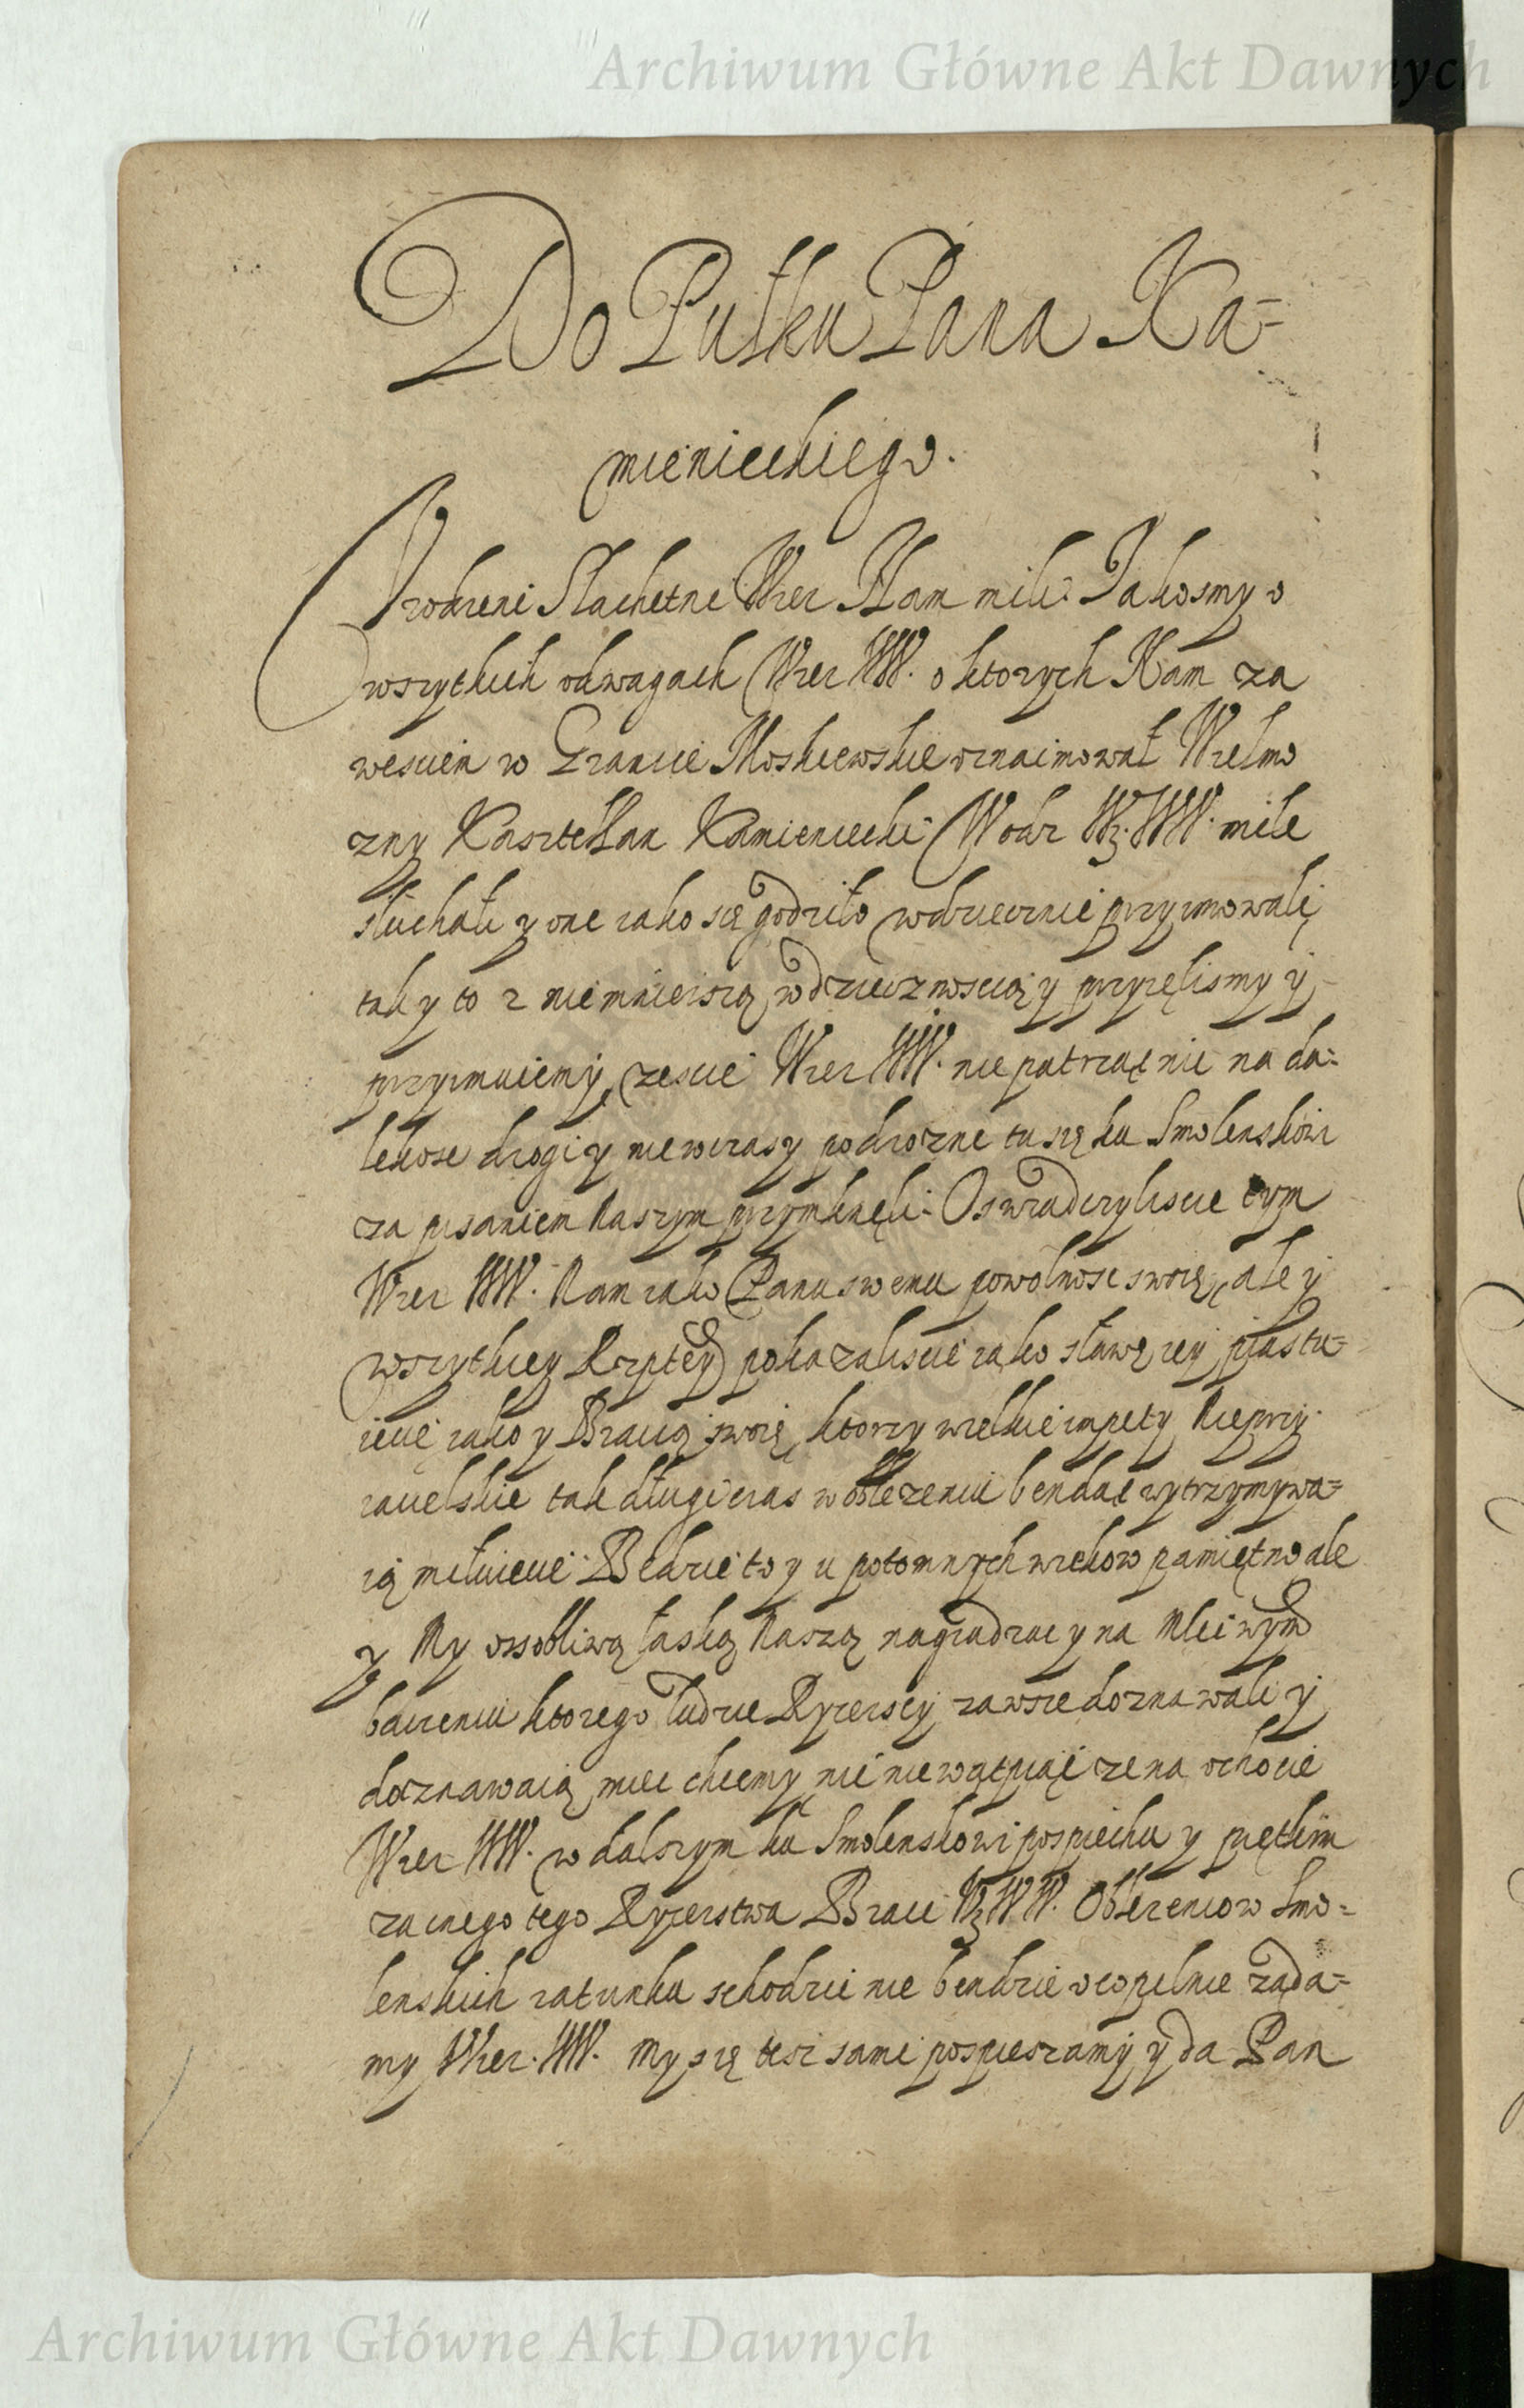 Archiwum Główne Akt Dawnych
Do Pułku Pana Ka=
mienieckiego.
Vrodzeni Slachetne Wrer Nam mili. Jakosmy o
wszytkich odwagach Wrer WW. o ktorych Nam za
wesciem w Granice Moskiewskie oznaimował Wielmo
zny Kasztellan Kamieniecki Wodz Wz. WW. mile
słuchali y one iako się godziło wdzięcznie przyimowali
tak y to z niemnieiszą wdzięcznoscią y przyięlismy y
przyimuiemy, zescie Wrer WW. nie patrząc nic na da=
lekosc drogi y niewczasy podrozne tu się ku Smolenskowi
za pisaniem Naszym przymknęli. Oswiadczyliscie tym
Wrer WW. Nam iako Panu swemu powolnosc swoię, ale y
wszytkiey Rzptey pokazaliscie iako sławę iey piastu=
iecie iako y Bracią swoię, ktorzy wielkie impety Nieprzy
iacielskie tak długi czas w oblezeniu bendąc wytrzymywa=
ią miłuiecie. Będzie to y u potomnych wiekow pamiętno ale
y My ossobliwą łaską Naszą nagradzac y na Msciwym
baczeniu ktorego ludzie Rycerscy zawsze doznawali y
doznawaią, miec chcemy, nic niewątpiąc ze na ochocie
Wrer WW. w dalszym ku Smolenskowi pospiechu y prętkim
zacnego tego Rycerstwa Braci Wz WW. Oblezencow Smo=
lenskich ratunku schodzic nie bendzie o co pilnie ząda=
my Wrer. WW. My się tesz sami pospieszamy y da Pan
Archiwum Główne Akt Dawnych